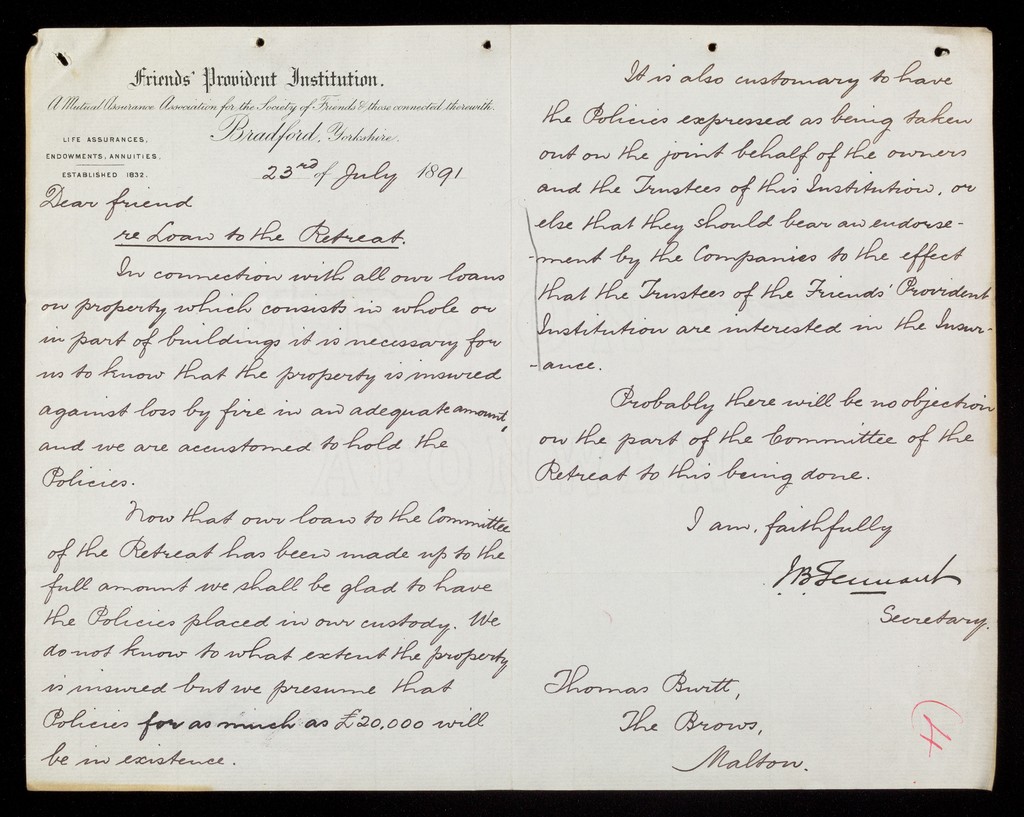 Friends' Provident Institution.
A Mutual Assurance Association for the Society of Friends & those connected therewith.
Bradford, Yorkshire.
LIFE ASSURANCES,
ENDOWMENTS, ANNUITIES,
ESTABLISHED 1832.
23rd of July 1891
Dear friend
re Loan to the Retreat.
In connection with all our loans
on property which consists in whole or
in part of buildings it is necessary for
us to know that the property is insured
against loss by fire in an adequate amount,
and we are accustomed to hold the
Policies.
Now that our loan to the Committee
of the Retreat has been made up to the
full amount we shall be glad to have
the Policies placed in our custody. We
do not know to what extent the property
is insured but we presume that
Policies for as much as £20,000 will
be in existence.
It is also customary to have
the Policies expressed as being taken
out on the joint behalf of the owners
and the Trustees of this Institution, or
else that they should bear an endorse-
-ment by the Companies to the effect
that the Trustees of the Friends' Provident
Institution are interested in the Insur-
-ance.
Probably there will be no objection
on the part of the Committee of the
Retreat to this being done.
I am, faithfully
J.B. Tennant
Secretary.
Thomas
The Brows,
Malton.
4